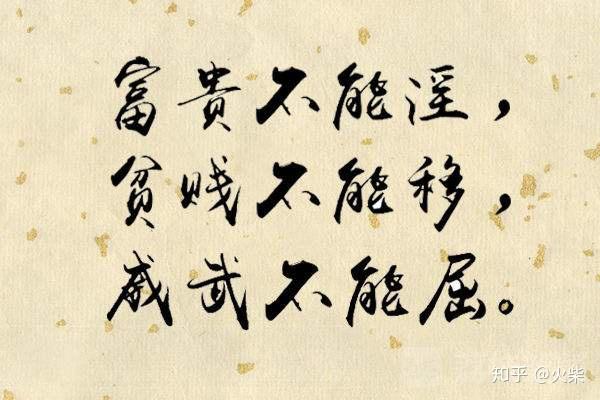 富贵不能淫，
贫贱不能移，
威武不能屈。
知乎 @火柴